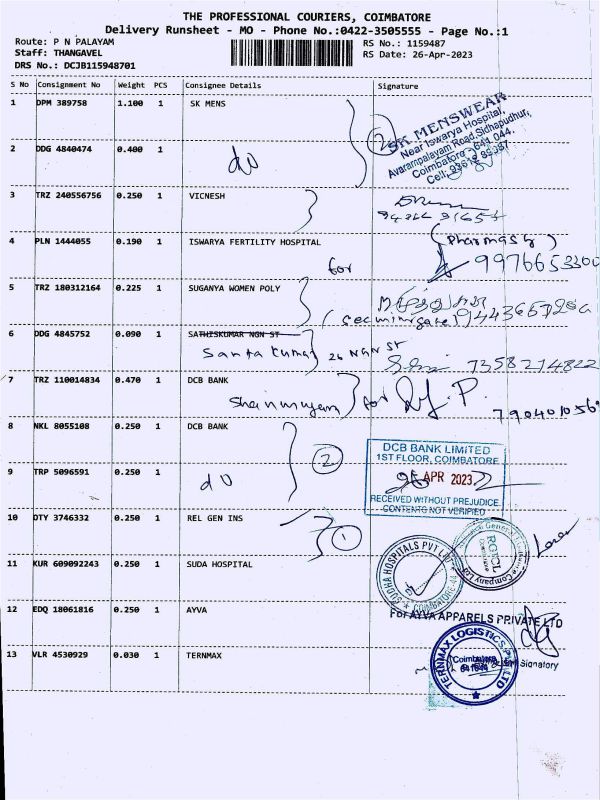 THE PROFESSIONAL COURIERS, COIMBATORE
Delivery Runsheet - MO - Phone No.:0422-3505555 - Page No.:1
Route: P N PALAYAM
RS No.: 1159487
Staff: THANGAVEL
RS Date: 26-Apr-2023
DRS No.: DCJB115948701
S No Consignment No Weight PCS Consignee Details Signature
1 DPM 389758 1.100 1 SK MENS
2
SK MENSWEAR
Near Iswarya Hospital,
Avarampalayam Road, Sidhapudhur,
Coimbatore - 641 044.
2 DDG 4840474 0.400 1
do
3 TRZ 240556756 0.250 1 VICNESH
4 PLN 1444055 0.190 1 ISWARYA FERTILITY HOSPITAL
for
9976653300
5 TRZ 180312164 0.225 1 SUGANYA WOMEN POLY
6 DDG 4845752 0.090 1 SATHISKUMAR NGN ST
Santa kumar 26 NGN ST
7358274822
7 TRZ 110014834 0.470 1 DCB BANK
Shanmugam for
8 NKL 8055108 0.250 1 DCB BANK
2
DCB BANK LIMITED
1ST FLOOR, COIMBATORE
26 APR 2023
RECEIVED WITHOUT PREJUDICE
CONTENTS NOT VERIFIED
9 TRP 5096591 0.250 1
do
10 DTY 3746332 0.250 1 REL GEN INS
1
RGICL
Coimbatore
11 KUR 609092243 0.250 1 SUDA HOSPITAL
SUDHA HOSPITALS PVT LTD
COIMBATORE
12 EDQ 18061816 0.250 1 AYVA
For AYVA APPARELS PRIVATE LTD
Signatory
13 VLR 4530929 0.030 1 TERNMAX
TERNMAX LOGISTICS PVT LTD
Coimbatore